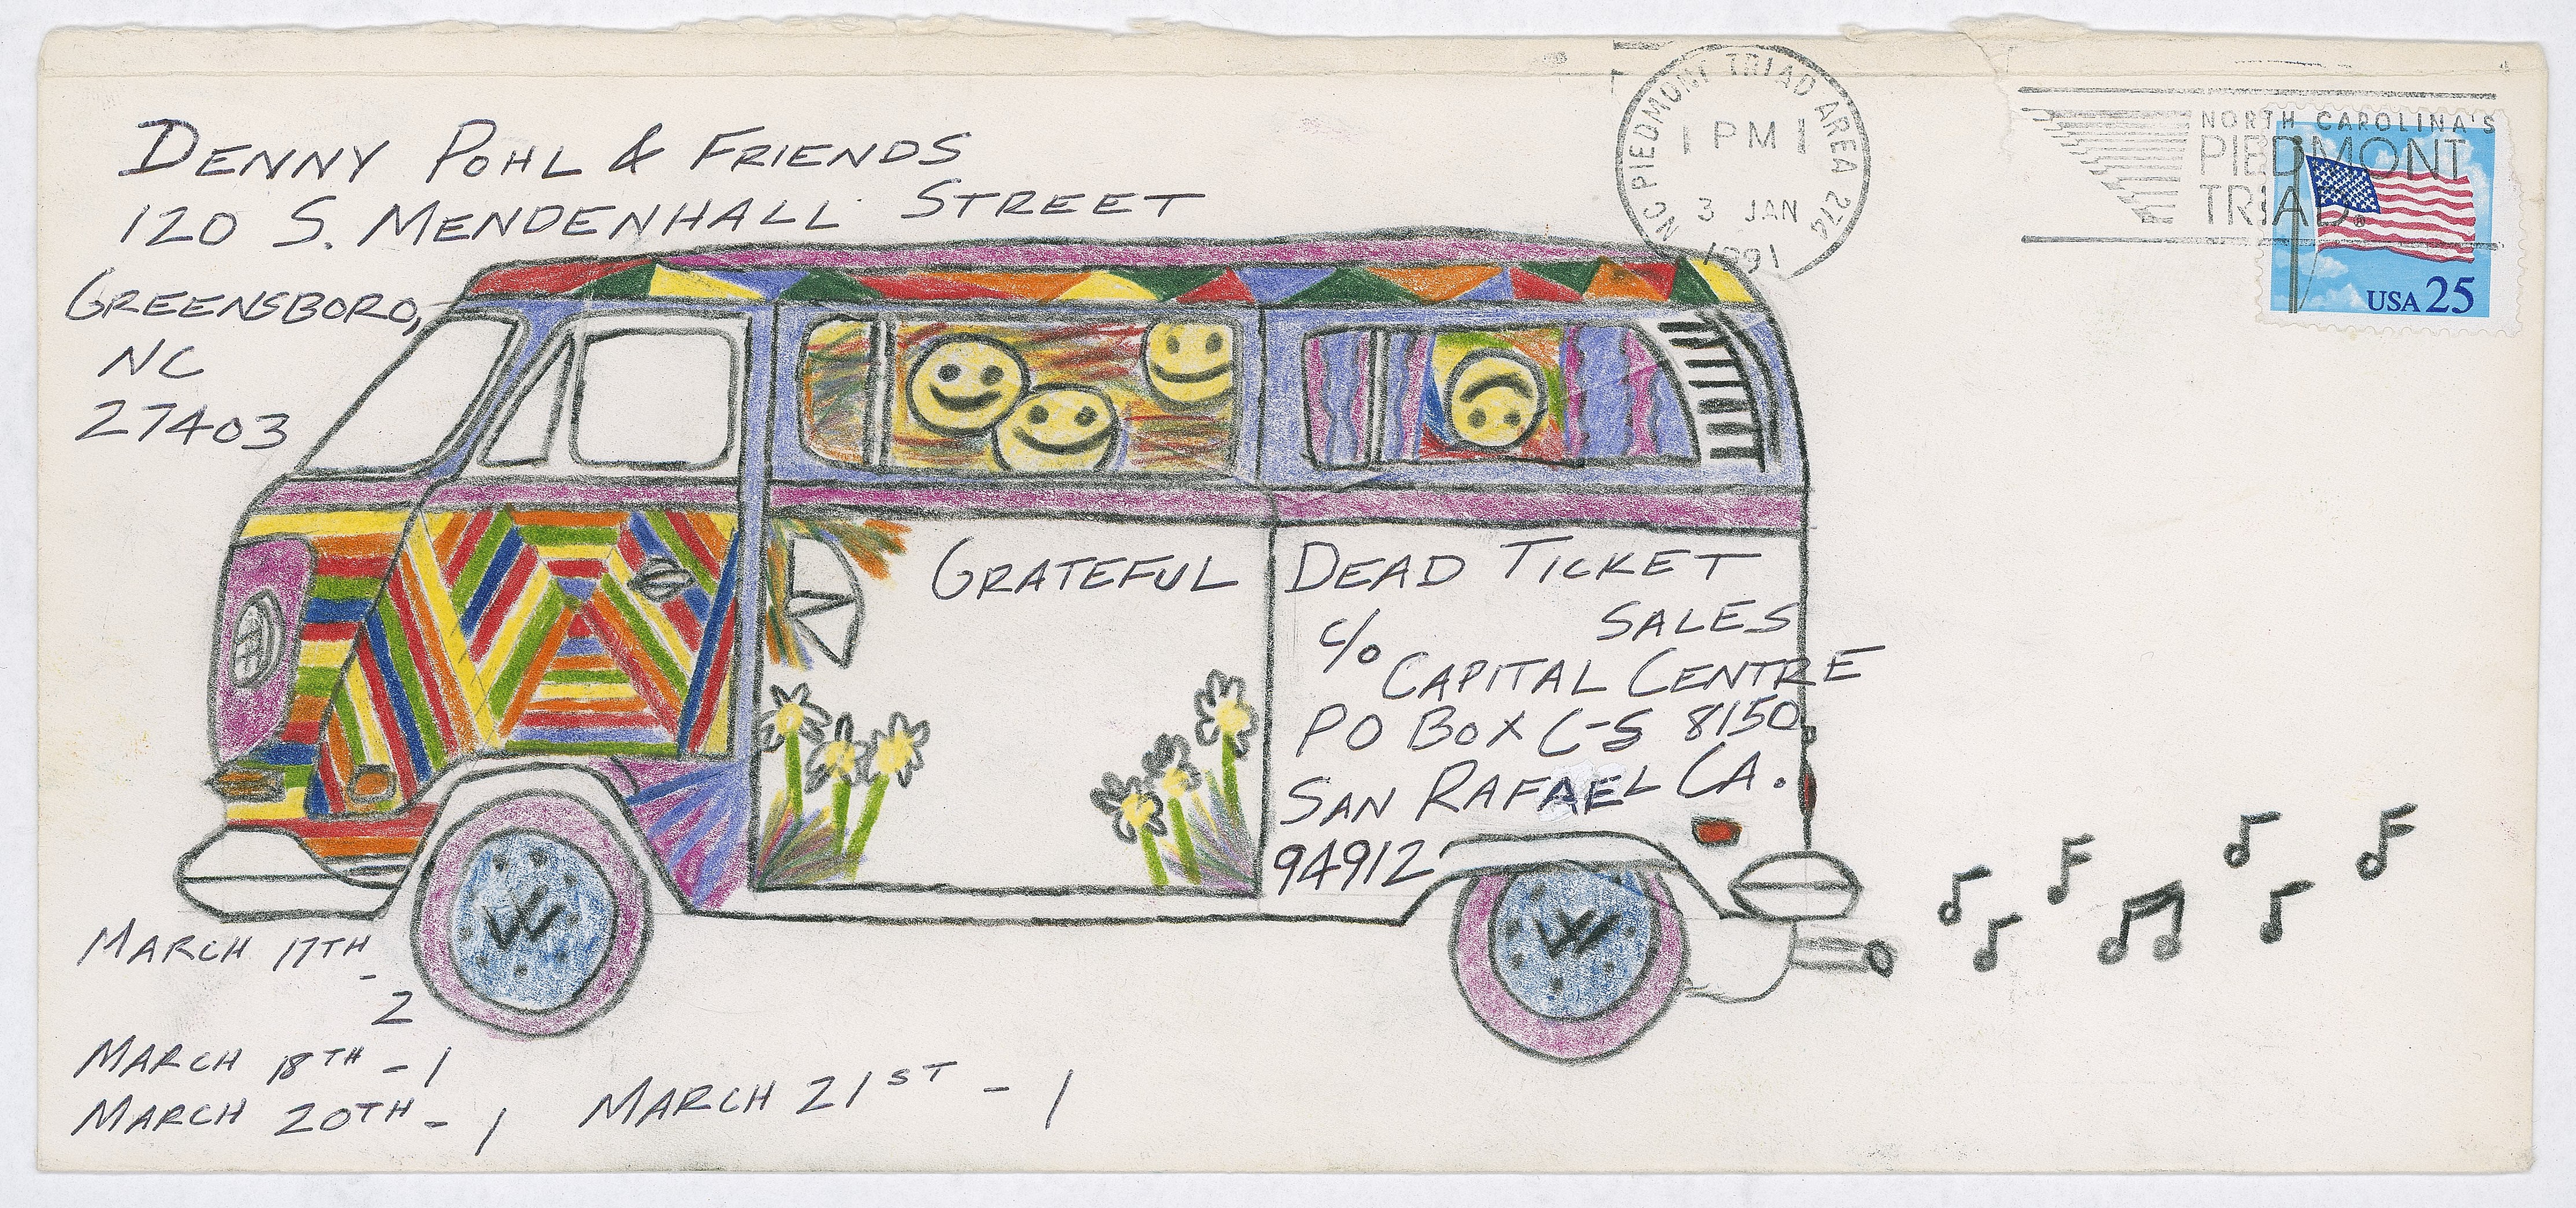 DENNY POHL & FRIENDS
120 S. MENDENHALL STREET
GREENSBORO,
NC
27403
NC PIEDMONT TRIAD AREA 274
1 PM 1
3 JAN
1991
NORTH CAROLINA'S
PIEDMONT
TRIAD®
USA 25
GRATEFUL DEAD TICKET
SALES
c/o
CAPITAL CENTRE
PO BOX C-S 8150
SAN RAFAEL CA.
94912
MARCH 17TH
- 2
MARCH 18TH - 1
MARCH 20TH - 1
MARCH 21ST - 1